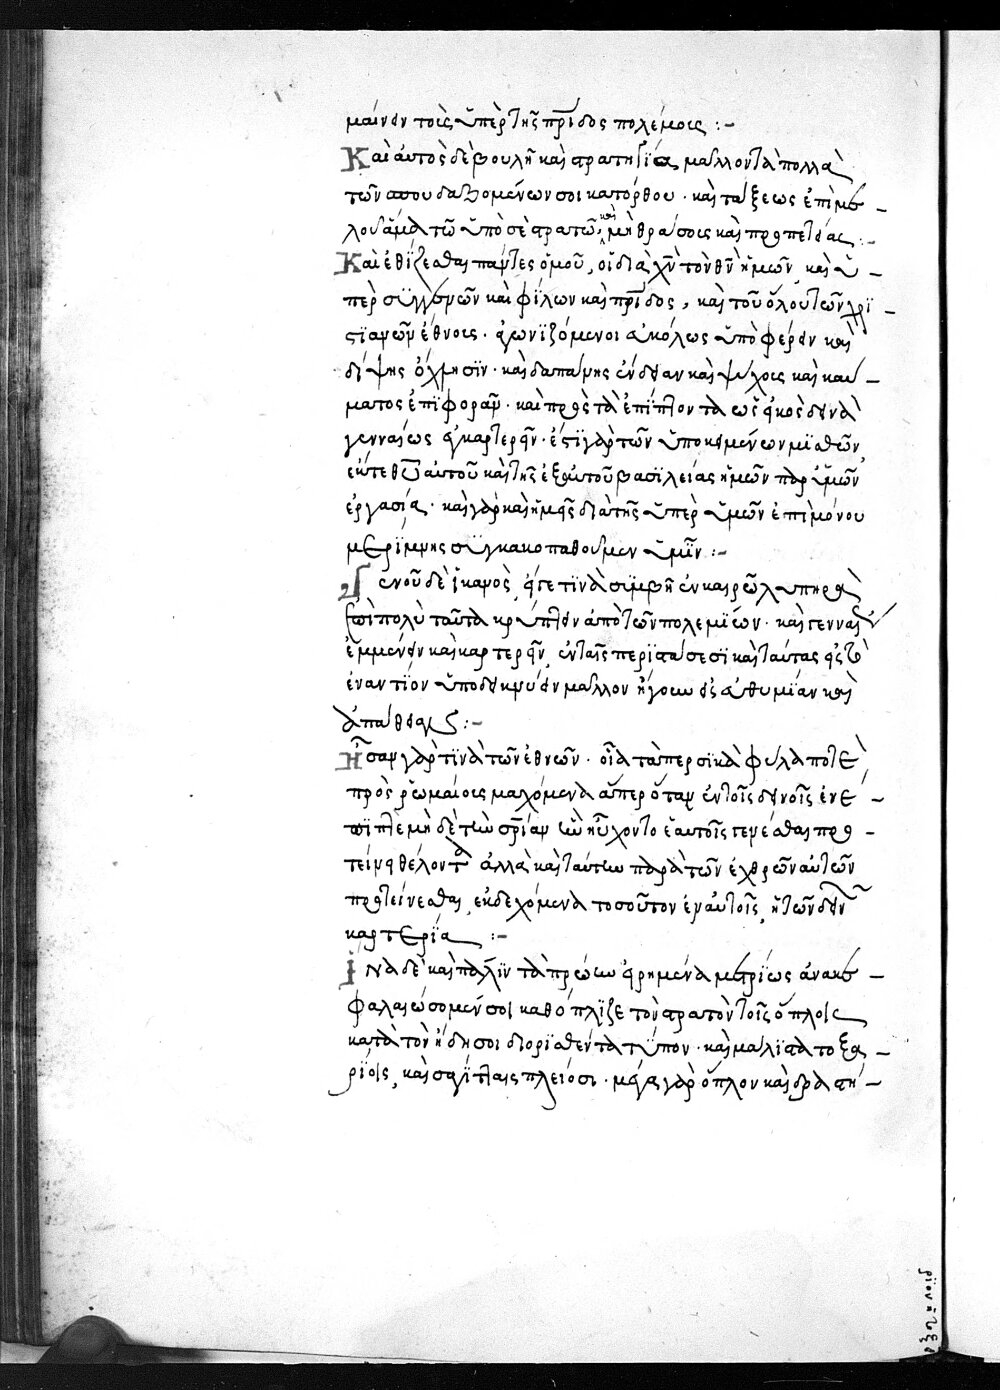 μαίνειν τοῖς ὑπὲρ τῆς πρίδος πολέμοις :-
Καὶ αὐτὸς δὲ βουλῆ καὶ στρατηγία μᾶλλον τὰ πολλὰ
τῶν σπουδαζομένων σοι κατόρθου · καὶ τάξεως ἐπιμε
λοῦ ἅμα τῶ ὑπὸ σὲ στρατῶ, καὶ μὴ θράσοις καὶ προπετείας :-
Καὶ ἐθίζεσθαι πάντες ὁμοῦ, οἱ διὰ χν τὸν θν ἡμῶν καὶ ὑ
πὲρ συγγενῶν καὶ φίλων καὶ πρίδος, καὶ τοῦ ὅλου τῶν χρι
στιανῶν ἔθνοις · ἀγωνιζόμενοι εὐκόλως ὑποφέρειν καὶ
δίψης ὄχλησιν · καὶ δαπάνης ἔνδειαν καὶ ψύχοις καὶ καύ
ματος ἐπιφοράν · καὶ πρὸς τὰ ἐπίπτοντα ὡς εἰκὸς δεινὰ
γενναίως ἐγκαρτερεῖν · ἔστι γὰρ τῶν ὑποκειμένων μισθῶν
ἔκ τε θυ αὐτοῦ καὶ τῆς ἐξ αὐτοῦ βασιλείας ἡμῶν παρ ὑμῶν
ἐργασία · καὶ γὰρ καὶ ἡμᾶς διὰ τῆς ὑπὲρ ὑμῶν ἐπιμόνου
μερίμνης συγκακοπαθοῦμεν ὑμῖν :-
Γενοῦ δὲ ἱκανὸς, εἴγε τινὰ συμβῆ ἐν καιρῶ λυπηρὰ
ἐπὶ πολὺ ταῦτα κρύπτειν ἀπὸ τῶν πολεμίων · καὶ γενναίων
ἐμμένειν καὶ καρτερεῖν ἐν ταῖς περιστάσεσι καὶ ταύτας εἰς τὸ
ἐναντίον ὑποδεικνύειν μᾶλλον ἤγουν εἰς εὐθυμίαν καὶ
ἀπάθειαν :-
Ἦσαν γάρ τινὰ τῶν ἐθνῶν · οἷα τὰ περσικὰ φύλα ποτὲ
πρὸς ῥωμαίοις μαχόμενα ἅπερ ὅταν ἐν τοῖς δεινοῖς ἐνέ
πιπτε μὴ δὲ τὴν σρίαν ἣν ηὔχοντο ἑαυτοῖς γενέσθαι προ
τείνειν θέλοντα ἀλλὰ καὶ ταύτην παρὰ τῶν ἐχθρῶν αὐτῶν
προτείνεσθαι ἐκδεχόμενα τοσοῦτον ἐν αὐτοῖς ἡ τῶν δειν
καρτερία :-
Ἵνα δὲ καὶ πάλιν τὰ πρώην εἰρημένα μετρίως ἀνακε
φαλαιώσομέν σοι καθόπλιζε τὸν στρατὸν τοῖς ὅπλοις
κατὰ τὸν ἤδη σοι διορισθέντα τύπον · καὶ μάλιστα τοξα
ρίοις, καὶ σαγίτταις πλείοσι · μέγα γὰρ ὅπλον καὶ δραστή